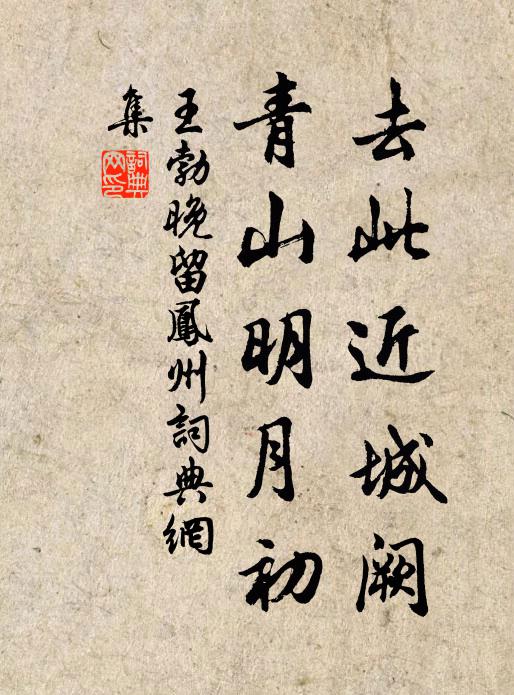 去此近城阙
青山明月初
王勃晚留鳳州詞典網
集
詞典
网印